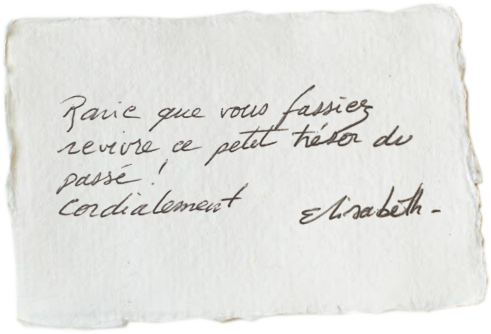 Ravie que vous fassiez
revivre ce petit trésor du
passé !
Cordialement
Elisabeth-